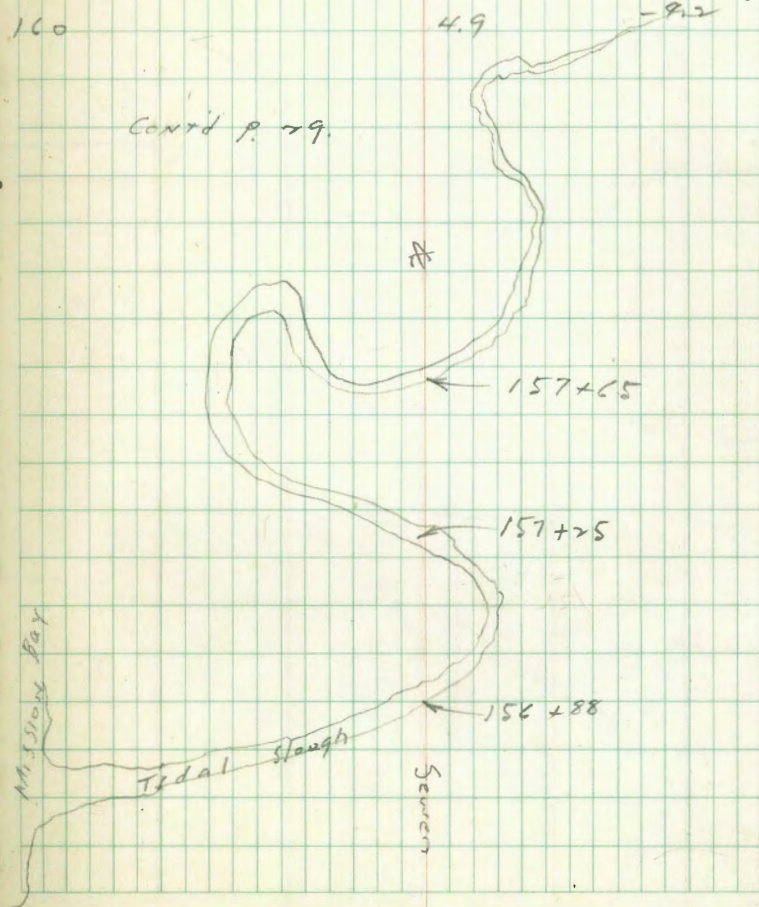 160
4.9
Cont'd P. 29.
157+65
157+25
156+88
Mission Bay
Tidal Slough
Sewer